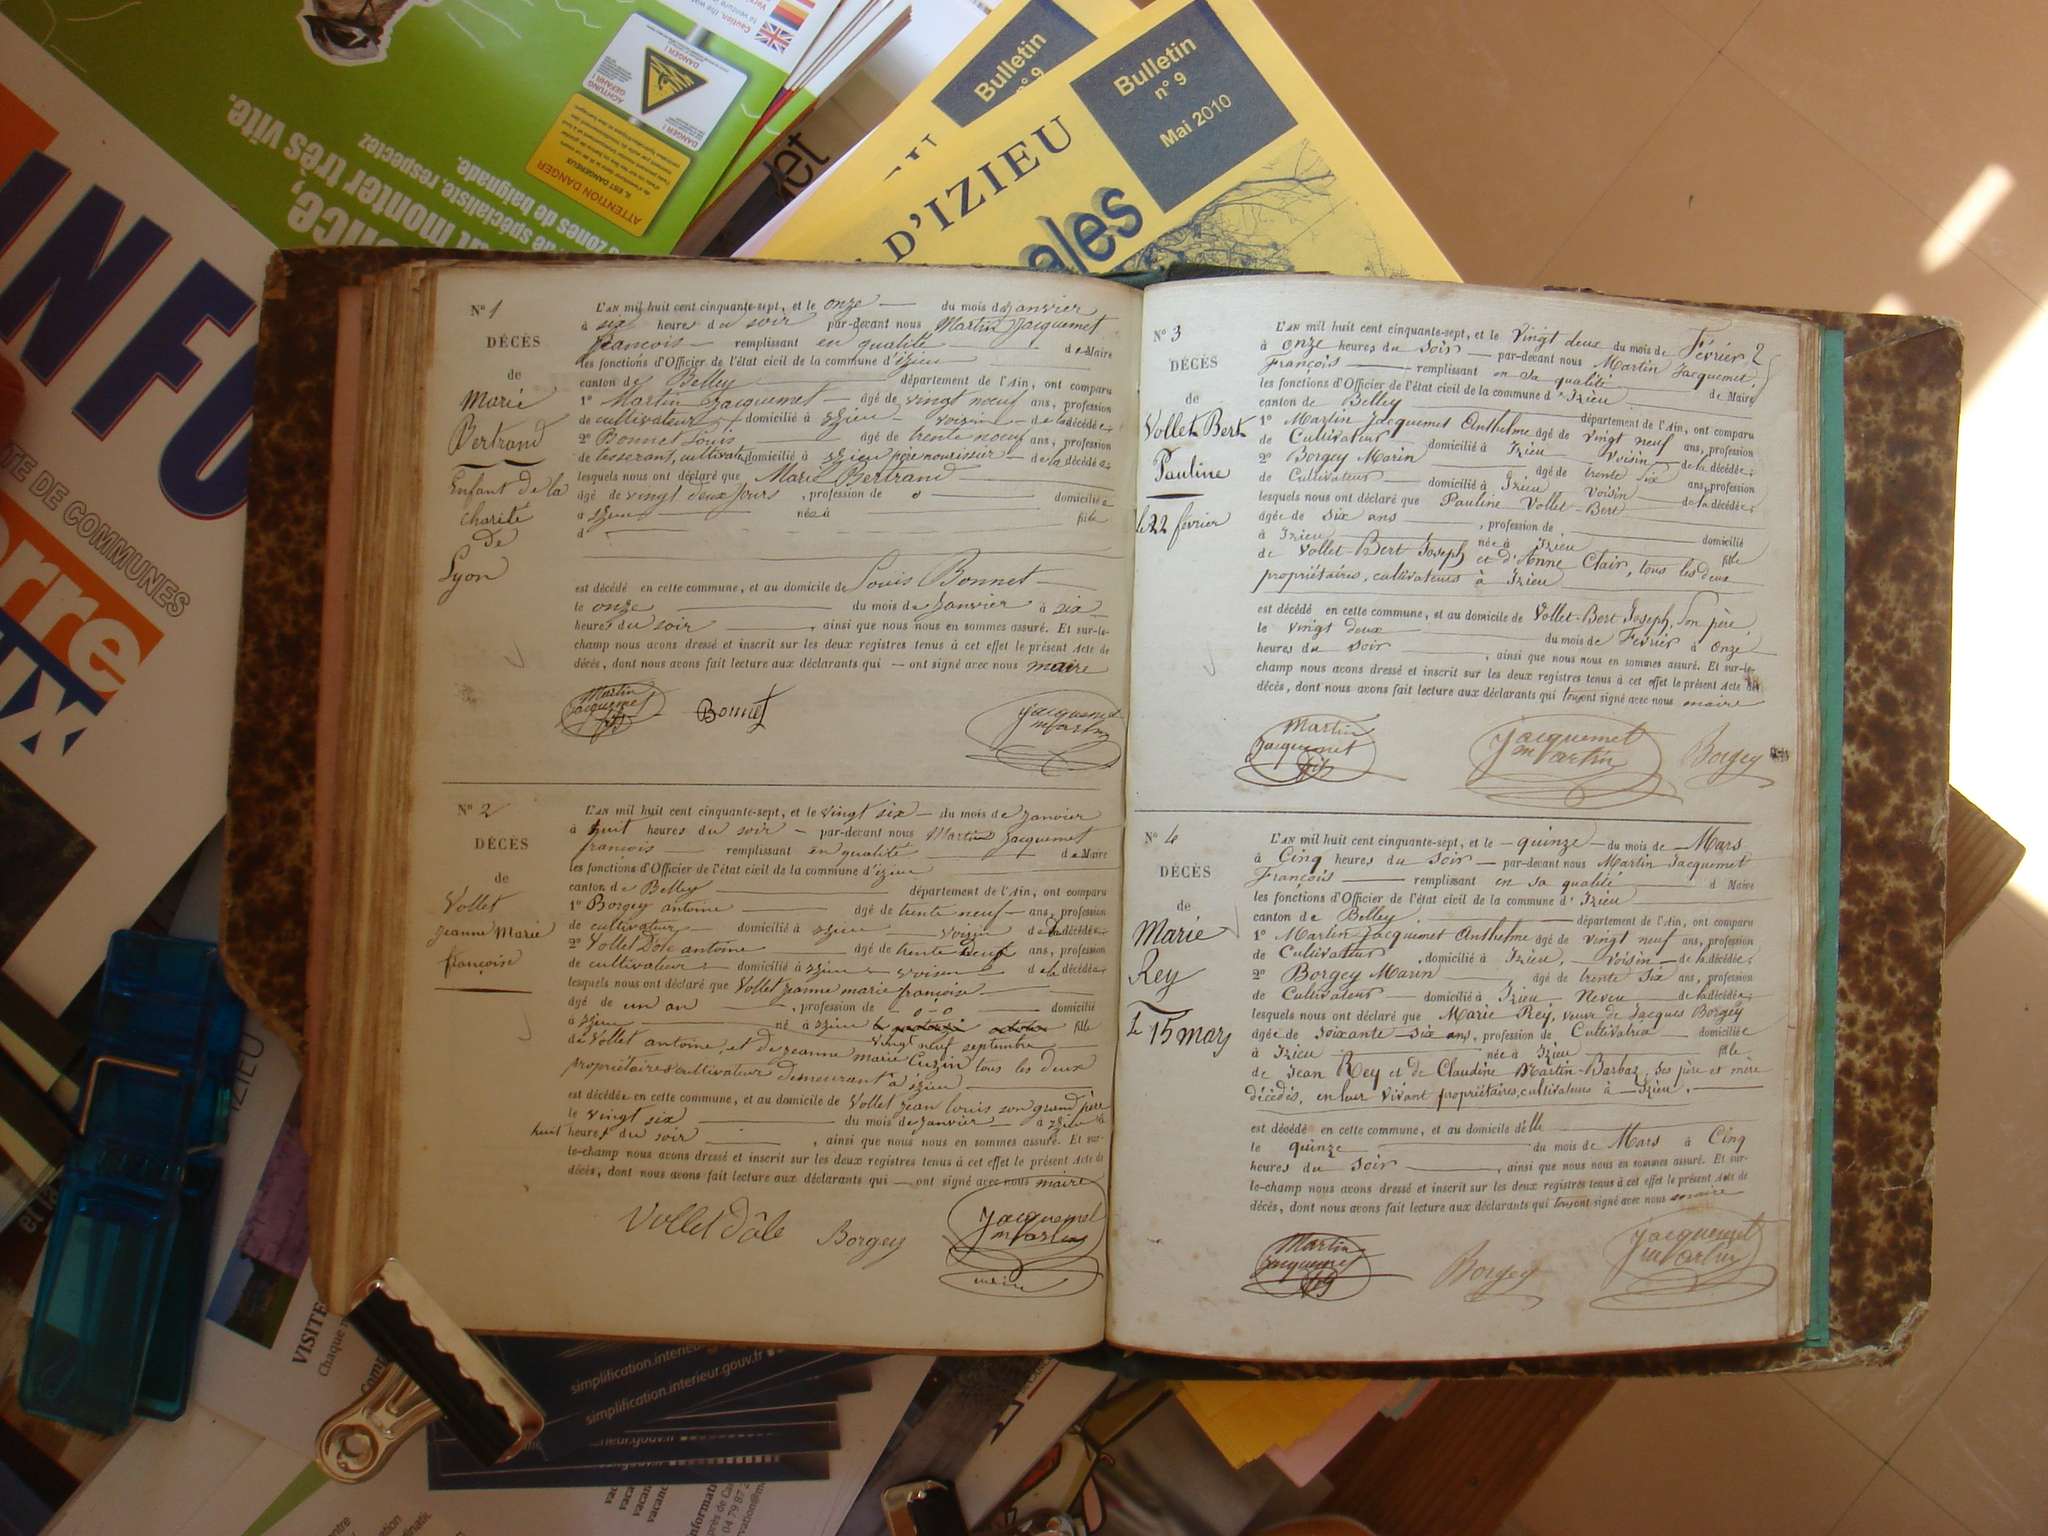 Bulletin
n° 9
Mai 2010
D'IZIEU
ales
Bulletin
n° 9
INFO
TÉ DE COMMUNES
erre
ux
très vite.
monter
de spécialiste, respectez
zones de baignade.
ATTENTION DANGER
DANGER !
N° 1
DÉCÈS
de
Marie
Bertrand
Enfant de la
charité
de
Lyon
L'AN mil huit cent cinquante-sept, et le onze du mois de janvier
à six heures du soir par-devant nous Martin Jacquemet
françois remplissant en qualité de Maire
les fonctions d'Officier de l'état civil de la commune d'izieu
canton de Belley département de l'Ain, ont comparu
1° Martin Jacquemet âgé de vingt neuf ans, profession
de cultivateur domicilié à izieu voisin de la décédée
2° Bonnet Louis âgé de trente neuf ans, profession
de tisserant, cultivateur domicilié à izieu père nourissier de la décédée
lesquels nous ont déclaré que Marie Bertrand
âgé de vingt deux jours, profession de domiciliée
à izieu née à fille
d
est décédé en cette commune, et au domicile de Louis Bonnet
le onze du mois de janvier à six
heures du soir, ainsi que nous nous en sommes assuré. Et sur-le-
champ nous avons dressé et inscrit sur les deux registres tenus à cet effet le présent Acte de
décès, dont nous avons fait lecture aux déclarants qui ont signé avec nous maire
Martin
Jacquemet
fils
Bonnet
Jacquemet
Martin
N° 2
DÉCÈS
de
Vollet
jeanne Marie
françoise
L'AN mil huit cent cinquante-sept, et le vingt six du mois de janvier
à huit heures du soir par-devant nous Martin Jacquemet
françois remplissant en qualité de Maire
les fonctions d'Officier de l'état civil de la commune d'izieu
canton de Belley département de l'Ain, ont comparu
1° Borgey antoine âgé de trente neuf ans, profession
de cultivateur domicilié à izieu voisin de la décédée
2° Vollet Dôle antoine âgé de trente ans, profession
de cultivateur domicilié à izieu voisin de la décédée
lesquels nous ont déclaré que Vollet jeanne marie françoise
âgé de un an, profession de domicilié
à izieu né à izieu fille
vingt neuf septembre
de Vollet antoine et de jeanne marie Cuzin tous les deux
propriétaires cultivateur demeurant à izieu
est décédée en cette commune, et au domicile de Vollet jean louis son grand père
le vingt six du mois de janvier à
huit heures du soir, ainsi que nous nous en sommes assuré. Et sur-
le-champ nous avons dressé et inscrit sur les deux registres tenus à cet effet le présent Acte de
décès, dont nous avons fait lecture aux déclarants qui ont signé avec nous maire
Vollet Dôle
Borgey
Jacquemet
Martin
maire
N° 3
DÉCÈS
de
Vollet Bert
Pauline
le 22 février
L'AN mil huit cent cinquante-sept, et le Vingt deux du mois de Février
à onze heures du Soir par-devant nous Martin Jacquemet
François remplissant en sa qualité de Maire
les fonctions d'Officier de l'état civil de la commune d'Izieu
canton de Belley département de l'Ain, ont comparu
1° Martin Jacquemet Anthelme âgé de Vingt neuf ans, profession
de Cultivateur domicilié à Izieu Voisin de la décédée;
2° Borgey Marin âgé de trente six ans, profession
de Cultivateur domicilié à Izieu Voisin de la décédée;
lesquels nous ont déclaré que Pauline Vollet-Bert
âgée de Six ans, profession de domicilié
à Izieu née à Izieu fille
de Vollet-Bert Joseph et d'Anne Clair, tous les deux
propriétaires, cultivateurs à Izieu
est décédé en cette commune, et au domicile de Vollet-Bert Joseph, Son père,
le vingt deux du mois de Février à Onze
heures du Soir, ainsi que nous nous en sommes assuré. Et sur-le-
champ nous avons dressé et inscrit sur les deux registres tenus à cet effet le présent Acte de
décès, dont nous avons fait lecture aux déclarants qui ont signé avec nous maire
Martin
Jacquemet
fils
Jacquemet
Martin
Borgey
N° 4
DÉCÈS
de
Marie
Rey
Le 15 mars
L'AN mil huit cent cinquante-sept, et le quinze du mois de Mars
à Cinq heures du Soir par-devant nous Martin Jacquemet
François remplissant en sa qualité d Maire
les fonctions d'Officier de l'état civil de la commune d'Izieu
canton de Belley département de l'Ain, ont comparu
1° Martin Jacquemet Anthelme âgé de Vingt neuf ans, profession
de Cultivateur domicilié à Izieu, Voisin de la décédée;
2° Borgey Marin âgé de trente Six ans, profession
de Cultivateur domicilié à Izieu Neveu de la décédée;
lesquels nous ont déclaré que Marie Rey, veuve de Jacques Borgey
âgée de Soixante-six ans, profession de Cultivatrice domiciliée
à Izieu née à Izieu fille
de Jean Rey et de Claudine Martin-Barbaz, ses père et mère
décédés, en leur Vivant propriétaires, cultivateurs à Izieu.
est décédé en cette commune, et au domicile d'Elle
le quinze du mois de Mars à Cinq
heures du Soir, ainsi que nous nous en sommes assuré. Et sur-
le-champ nous avons dressé et inscrit sur les deux registres tenus à cet effet le présent Acte de
décès, dont nous avons fait lecture aux déclarants qui ont signé avec nous maire
Martin
Jacquemet
fils
Borgey
Jacquemet
Martin
IZIEU
VISITE
Chaque
simplification.interieur.gouv.fr
simplification.interieur.gouv.fr